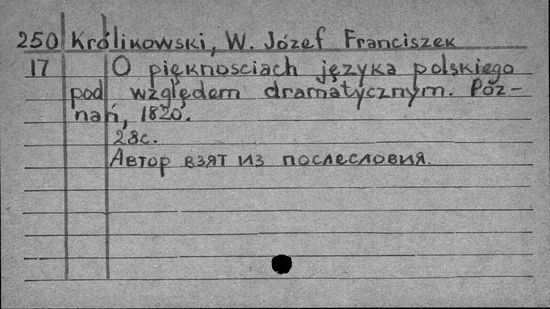 250 Królikowski, W. Józef Franciszek
17 O pięknosciach języka polskiego
pod względem dramatycznym. Poz-
nań, 1820.
28с.
Автор взят из послесловия.